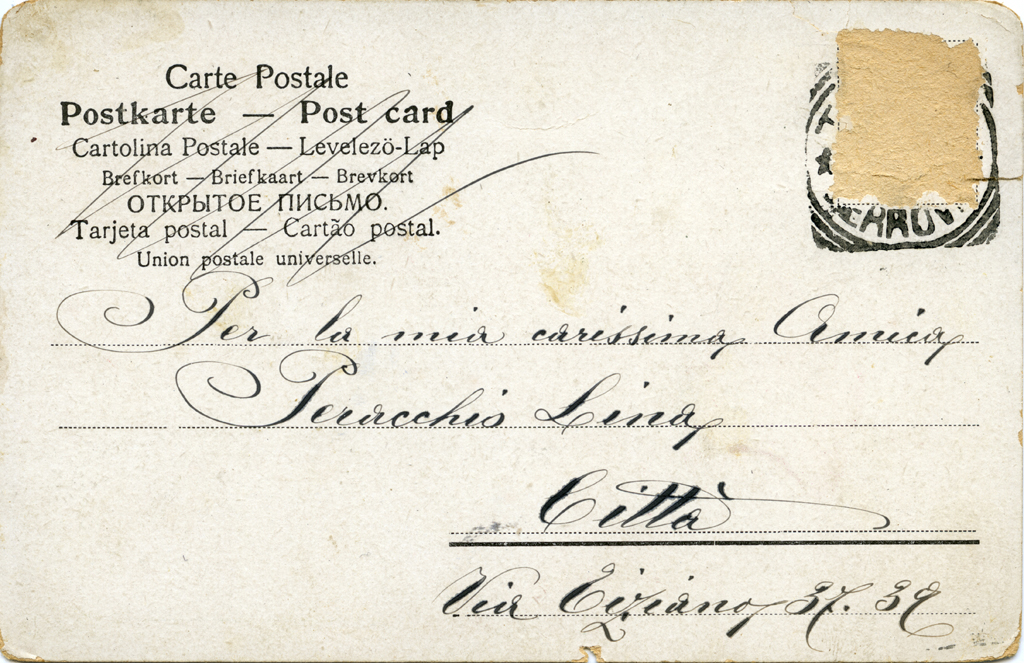 Carte Postale
Postkarte — Post card
Cartolina Postale — Levelezö-Lap
Brefkort — Briefkaart — Brevkort
ОТКРЫТОЕ ПИСЬМО.
Tarjeta postal — Cartão postal.
Union postale universelle.
Per la mia carissima Amica
Peracchio Lina
Città
Via Tiziano 37. 39